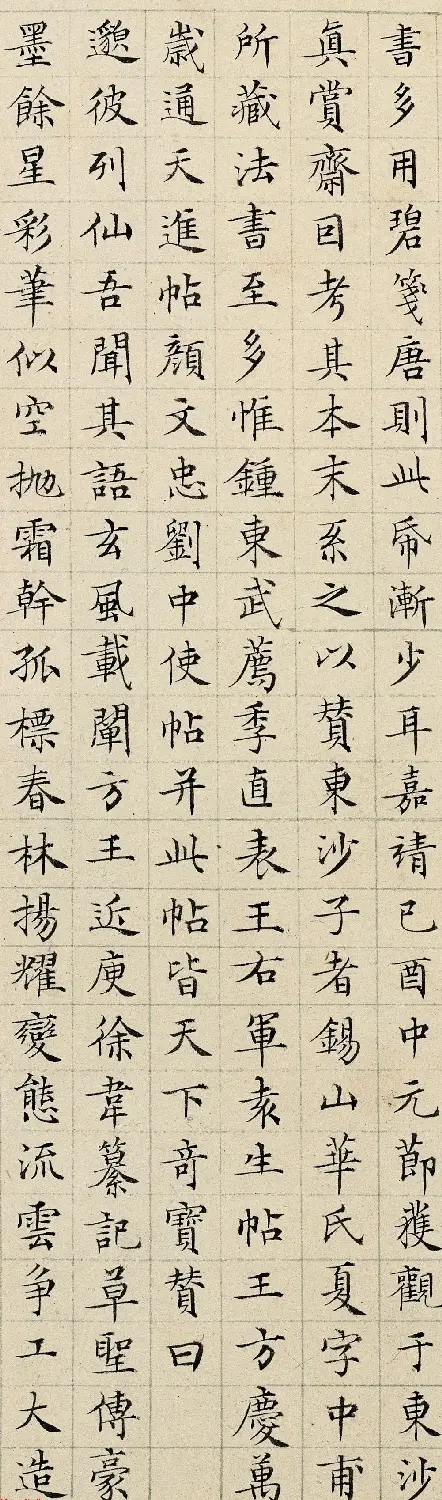 書多用碧箋唐則此帋漸少耳嘉靖已酉中元節獲觀于東沙
真賞齋回考其本末系之以贊東沙子者錫山華氏夏字中甫
所藏法書至多惟鍾東武薦季直表王右軍袁生帖王方慶萬
歲通天進帖顏文忠劉中使帖并此帖皆天下奇寶贊曰
邈彼列仙吾聞其語玄風載闡方王近庾徐韋纂記草聖傳豪
墨餘星彩筆似空拋霜幹孤標春林揚耀變態流雲爭工大造